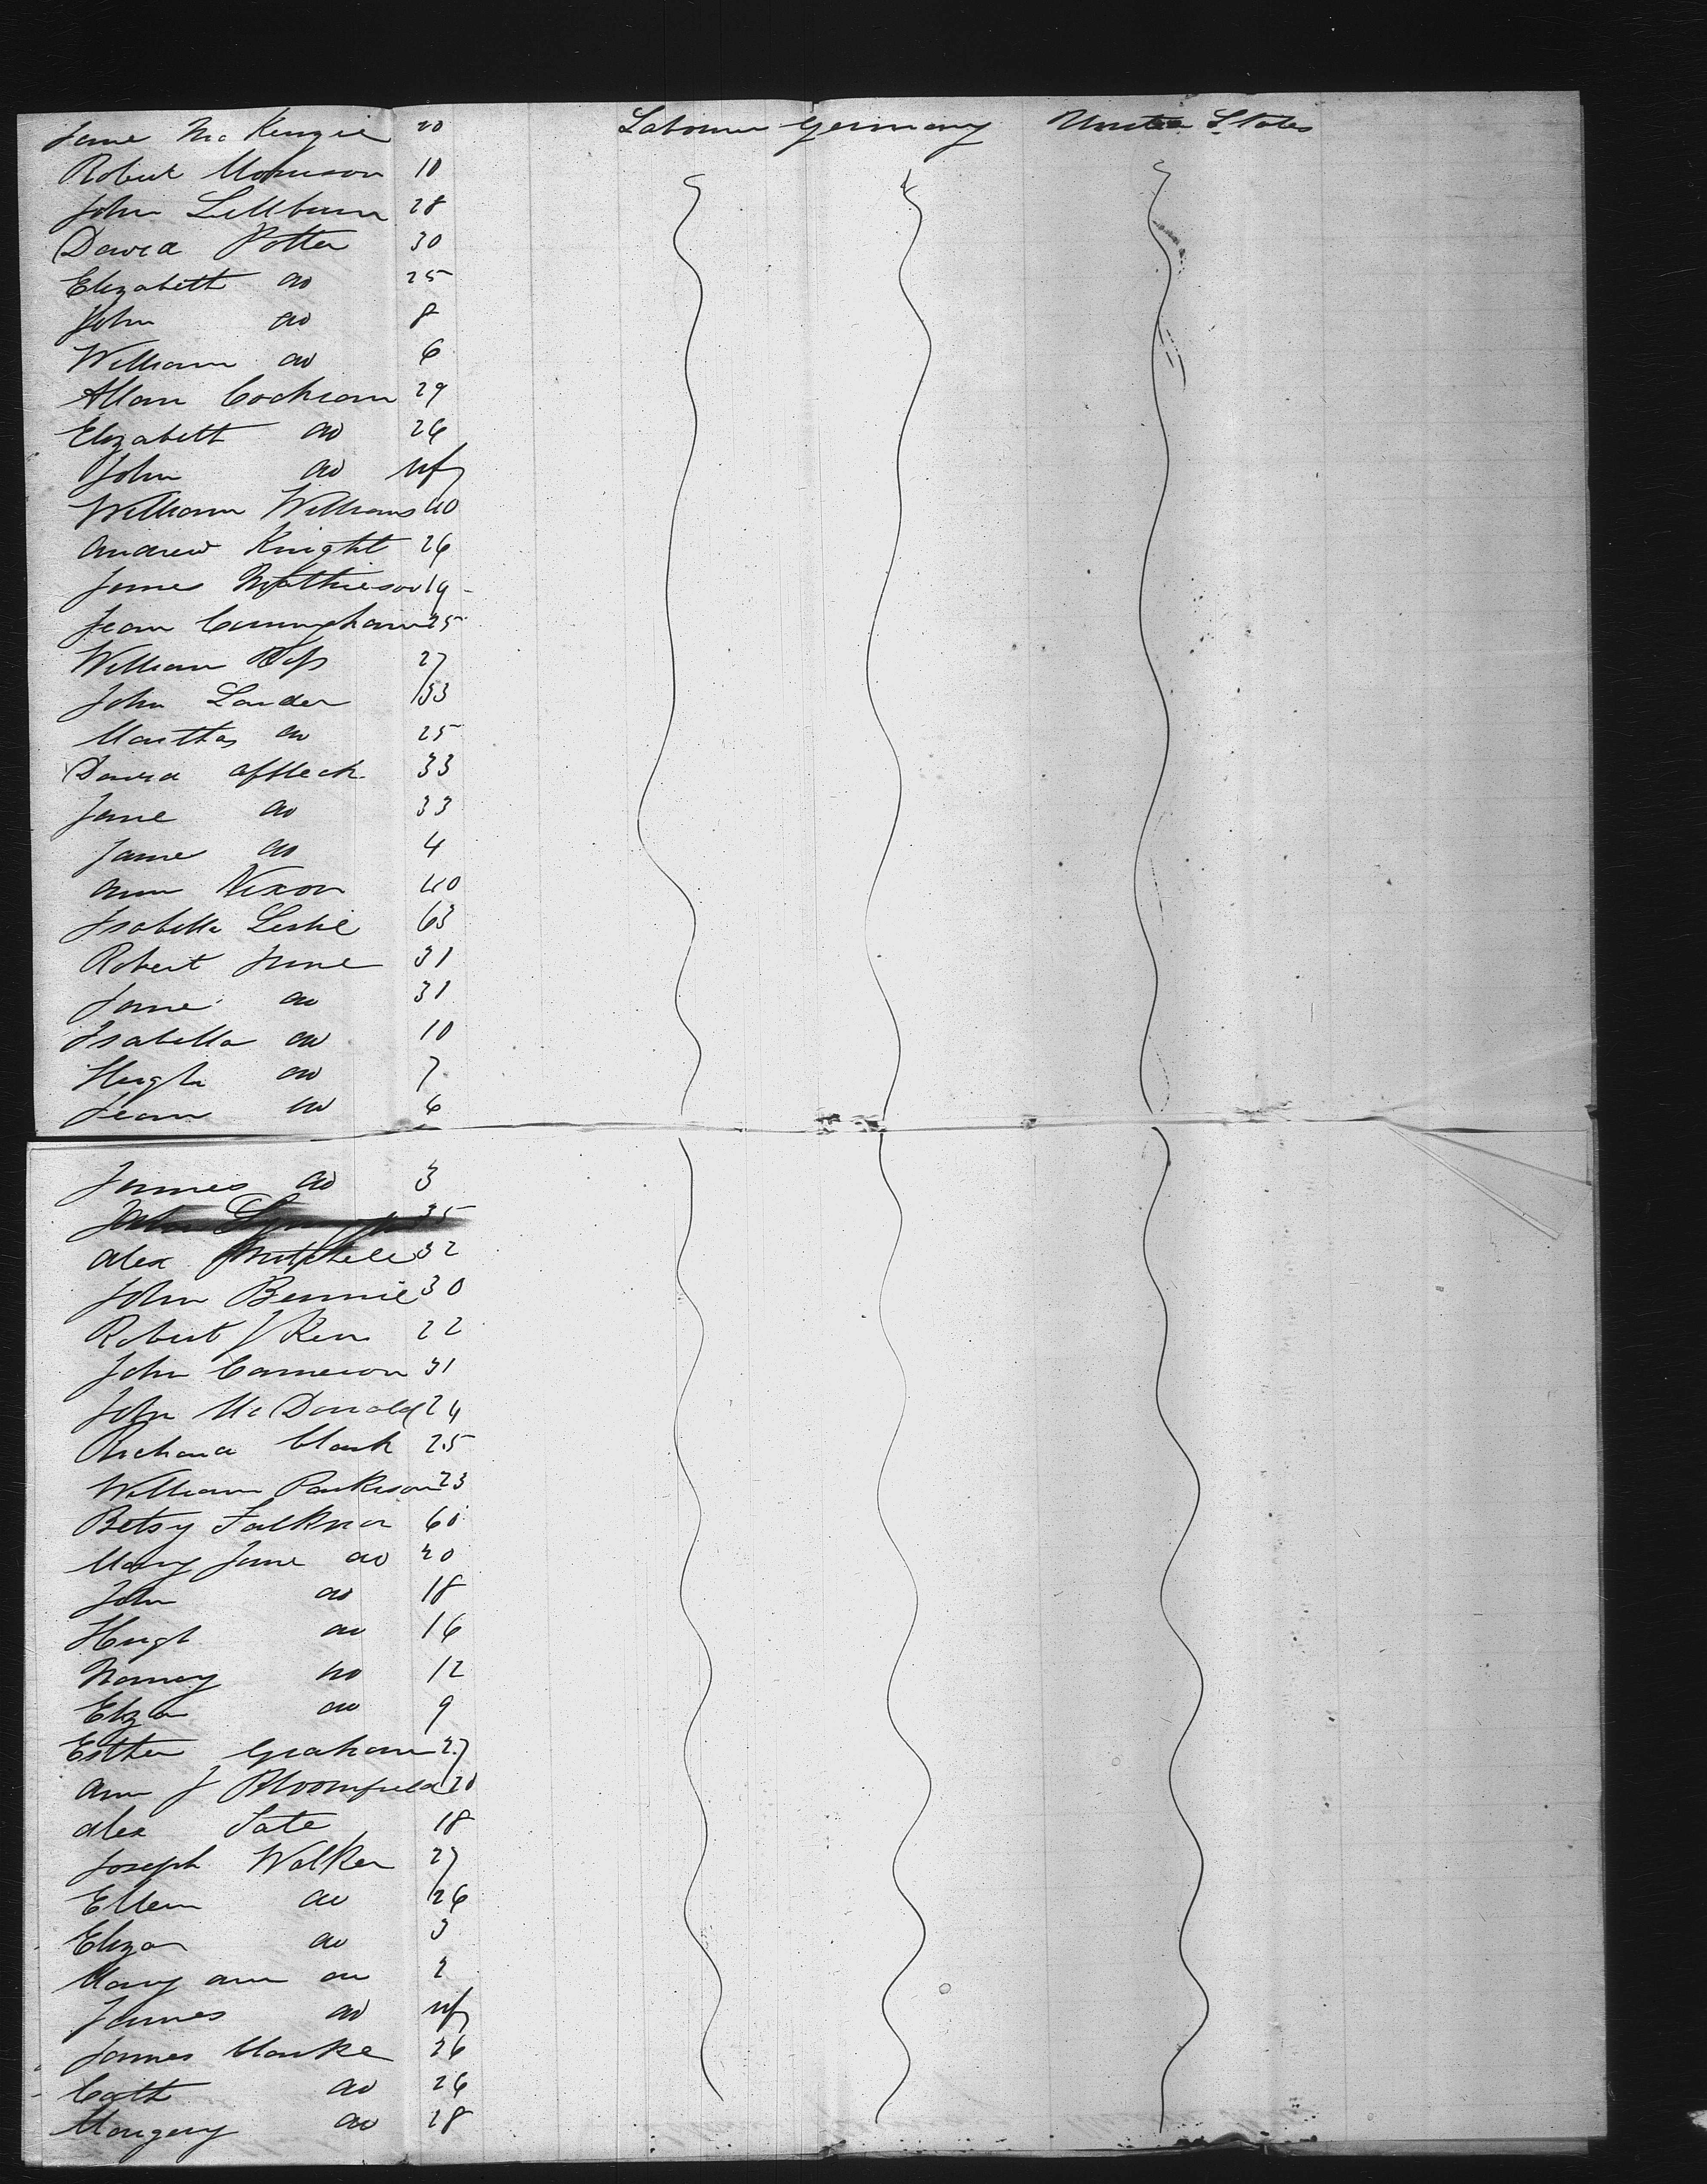 Jane McKenzie 20 Labourer Germany United States
Robert Morrison 10
John Lillburn 28
David Potter 30
Elizabeth do 25
John do 8
William do 6
Allan Cochran 29
Elizabeth do 26
John do inf
William Williams 40
Andrew Knight 26
James Mathieson 19
Jean Cuningham 25
William 27
John Lauder 33
Martha do 25
David Affleck 33
Jane do 33
Jane do 4
Ann Nixon 40
Isabella Leslie 63
Robert June 31
Jane do 31
Isabella do 10
Hugh do 7
Jean do 6
James do 3
John 35
Alex Mitchell 32
John Bennie 30
Robert J Kerr 22
John Cameron 31
John McDonald 24
Richard Clark 25
William Parkison 23
Betsy Falkner 60
Mary Jane do 20
John do 18
Hugh do 16
Nancy do 12
Eliza do 9
Esther Graham 27
Ann J Bloomfield 20
Alex Tate 18
Joseph Walker 27
Ellen do 26
Eliza do 3
Mary Ann do 2
James do inf
James Clarke 26
Cath do 26
Margery do 28